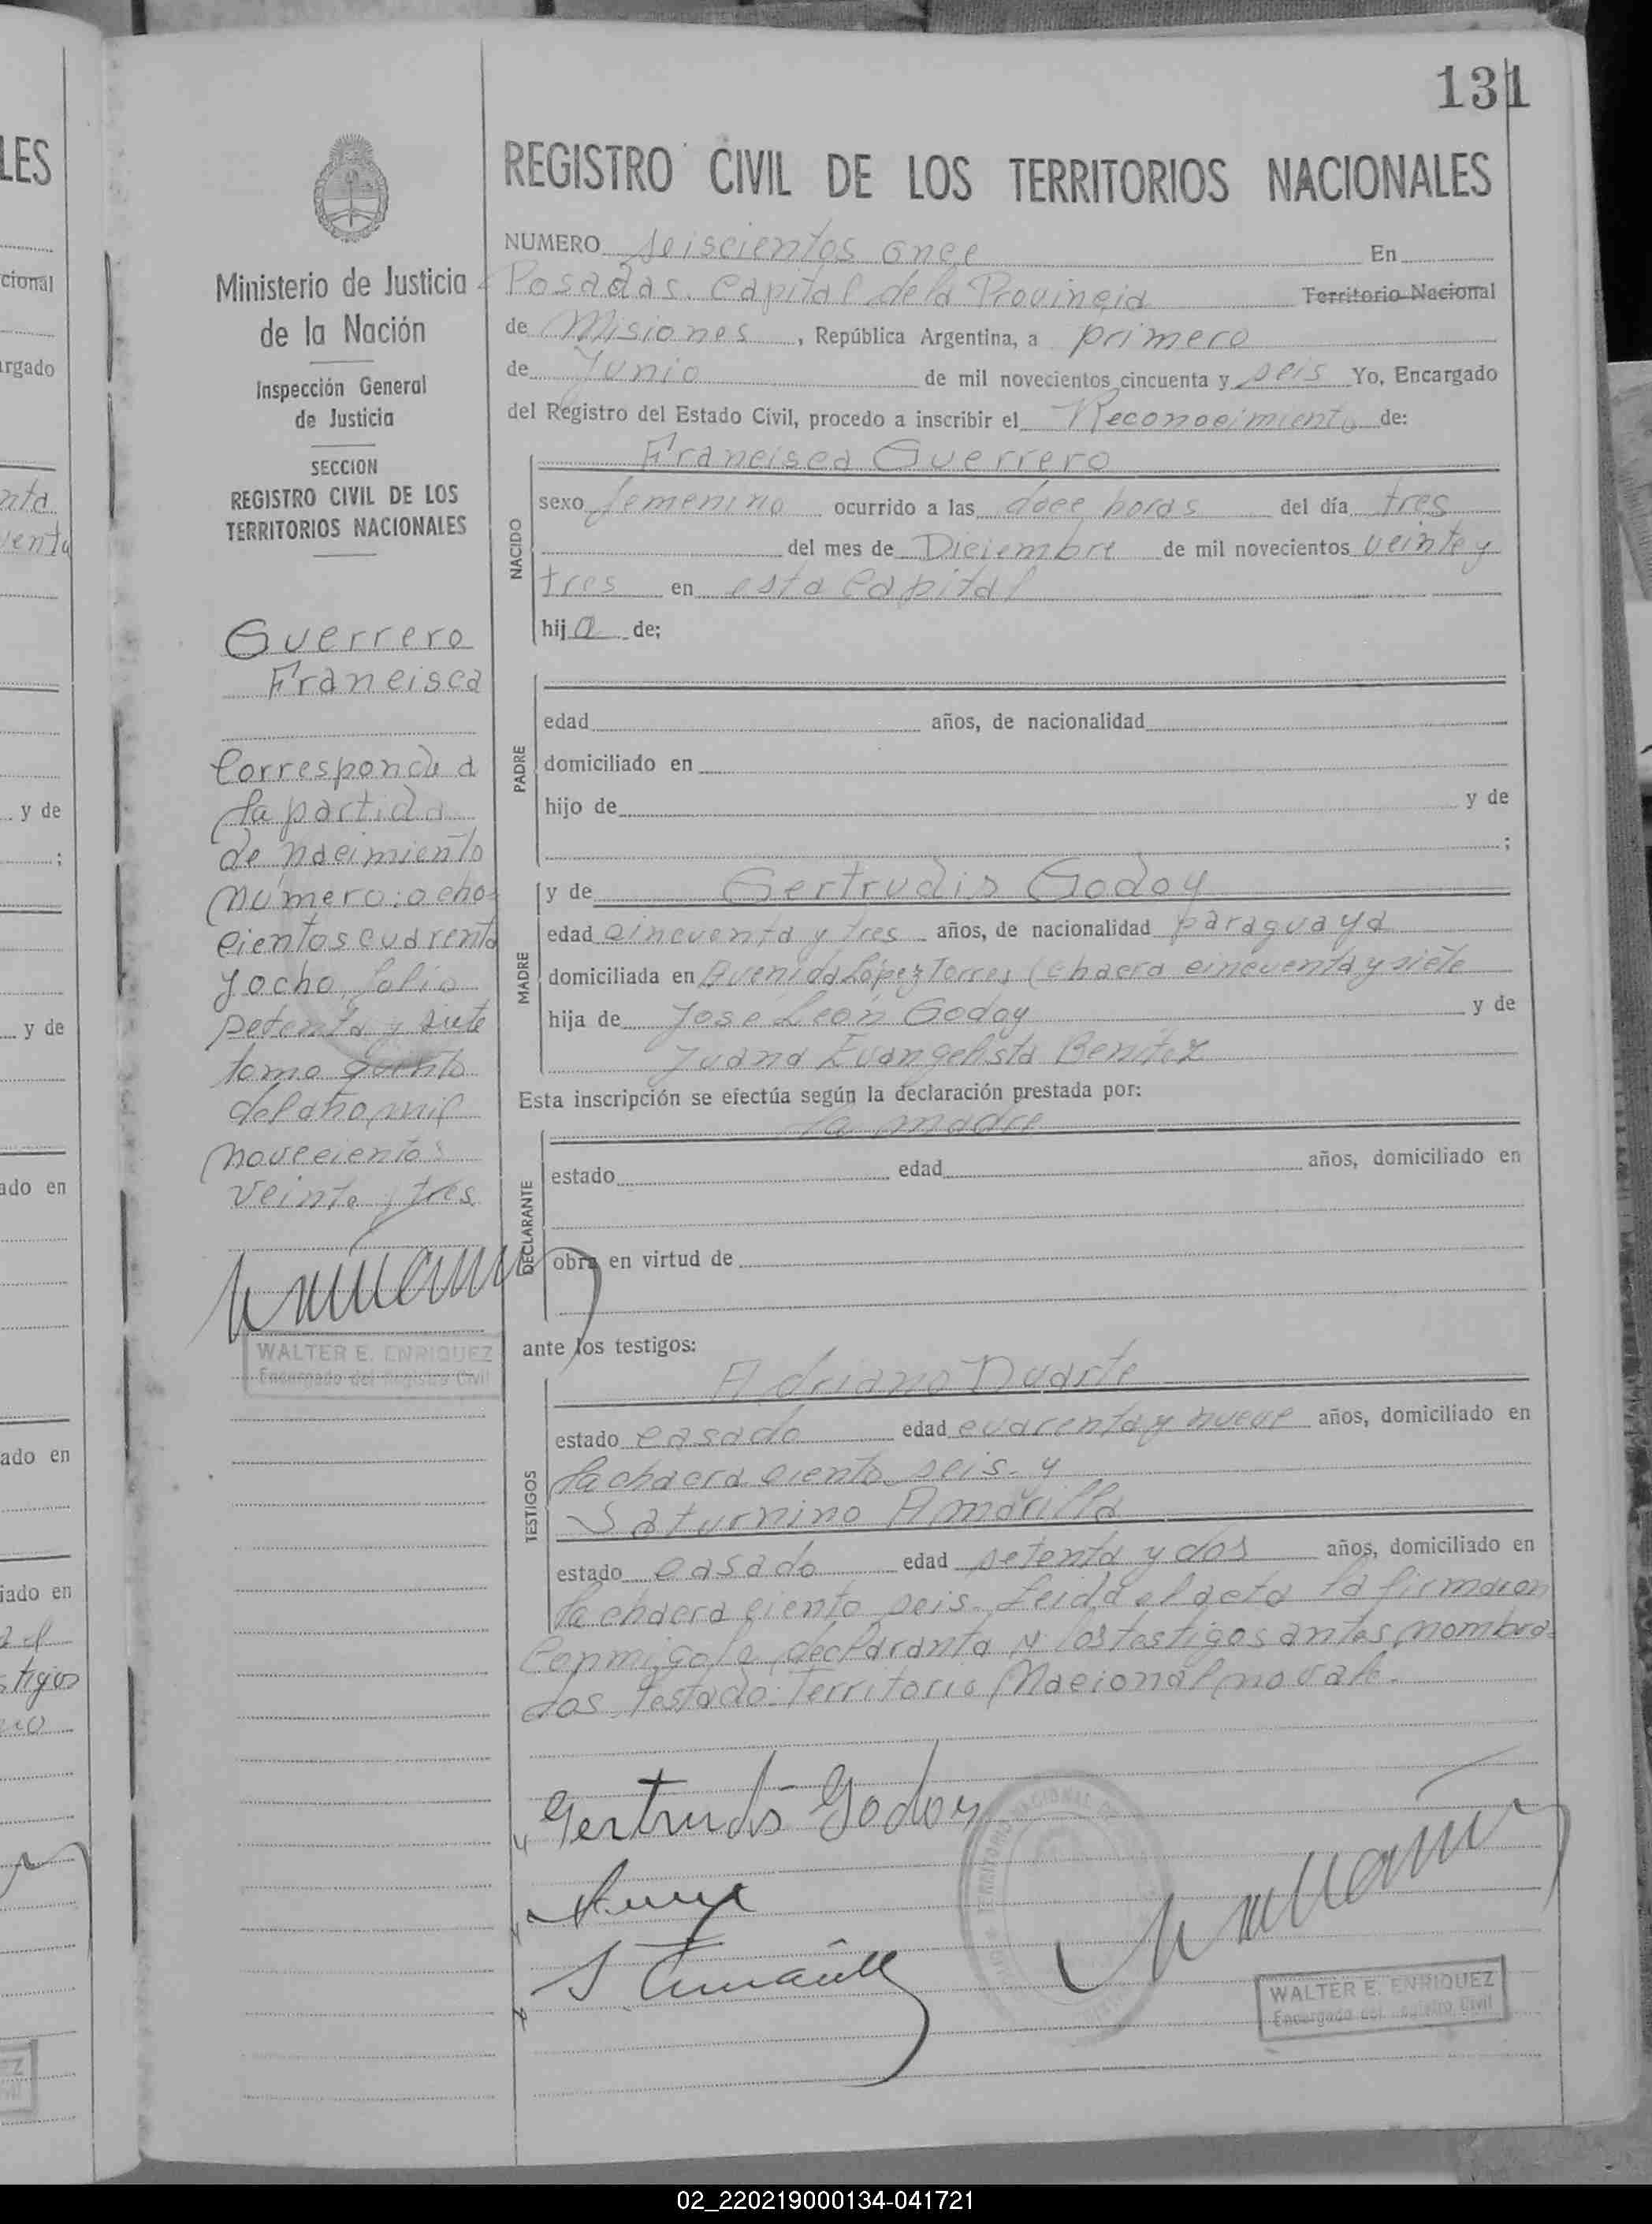 131
LES
cional
argado
nta
venta
y de
;
y de
ado en
ado en
iado en
a el
stigos
REGISTRO CIVIL DE LOS TERRITORIOS NACIONALES
Ministerio de Justicia
de la Nación
Inspección General
de Justicia
SECCION
REGISTRO CIVIL DE LOS
TERRITORIOS NACIONALES
Guerrero
Francisca
Corresponde a
la partida
de nacimiento
número: ocho=
cientos cuarenta
y ocho, folio
setenta y siete
tomo quinto
del año mil
novecientos
veinte y tres
WALTER E. ENRIQUEZ
Encargado del Registro Civil
NUMERO seiscientos once En
Posadas. Capital de la Provincia Territorio Nacional
de Misiones, República Argentina, a primero
de Junio de mil novecientos cincuenta y seis Yo, Encargado
del Registro del Estado Civil, procedo a inscribir el Reconocimiento de:
Francisca Guerrero
NACIDO
sexo femenino ocurrido a las doce horas del día tres
del mes de Diciembre de mil novecientos veinte y
tres en esta Capital
hija de;
PADRE
edad años, de nacionalidad
domiciliado en
hijo de y de
;
y de Gertrudis Godoy
MADRE
edad cincuenta y tres años, de nacionalidad paraguaya
domiciliada en Avenida López Torres (chacra cincuenta y siete
hija de José León Godoy y de
Juana Evangelista Benitez
Esta inscripción se efectúa según la declaración prestada por:
la madre
DECLARANTE
estado edad años, domiciliado en
obra en virtud de
ante los testigos:
Adriano Duarte
TESTIGOS
estado casado edad cuarenta y nueve años, domiciliado en
la chacra ciento seis. y
Saturnino Amarilla
estado casado edad setenta y dos años, domiciliado en
la chacra ciento seis. Leida el acta la firmaron
conmigo la declaranta y los testigos antes nombra=
dos. Testado: Territorio Nacional, no vale.
Gertrudis Godoy
S Amarilla
WALTER E. ENRIQUEZ
Encargado del Registro Civil
02_220219000134-041721